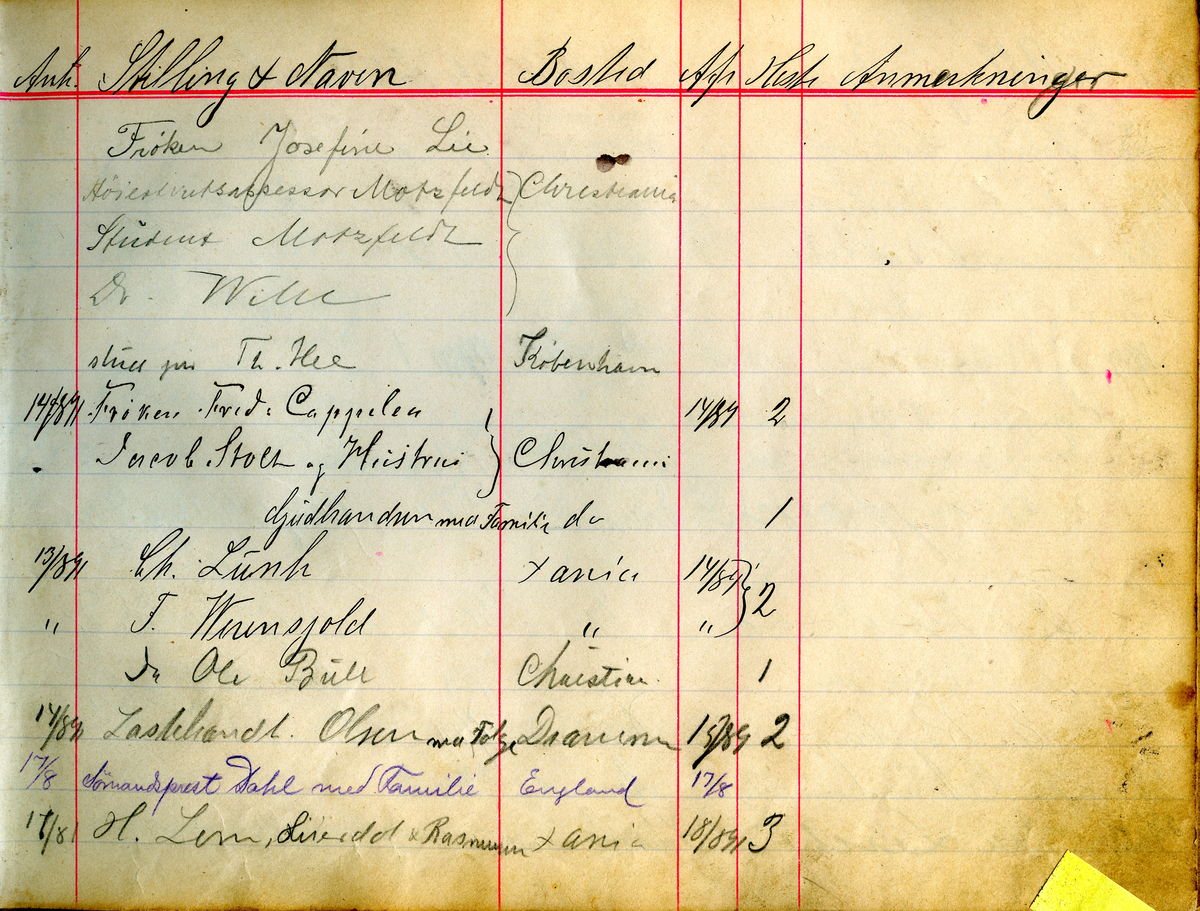 Ank. Stilling & Navn Bosted Afr Heste Anmerkninger
Frøken Josefine Lie
Höiesteretsassessor Motzfeldt Christiania
Student Motzfeldt
Dr.
stud jur Th. Hee København
14/8 91 Frøken Fred. Cappelen 14/8 91 2
Jacob Stolt og Hustru Christiania
med Familie do 1
13/8 91 Ch. Lunh Xania 14/8 91 2
" F. Werenskjold " "
Dr Ole Bull Christian. 1
14/8 91 Lasthandl. Olsen med Følge Drammen 15/8 91 2
17/8 Sömandsprest Dahl med Familie England 17/8
H. & Rasmussen Xania 18/8 91 3